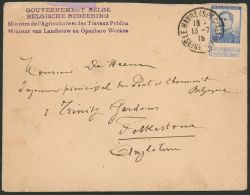 GOUVERNEMENT BELGE
BELGISCHE REGEERING
Ministre de l'Agriculture et des Travaux Publics
Minister van Landbouw en Openbare Werken
LE HAVRE (SPECIAL)
18 -
13 - 7
15
SEINE
Monsieur De Heem
Ingénieur principal des Ponts et Chaussées
Belge
1 Trinity Gardens
Folkestone
Angleterre